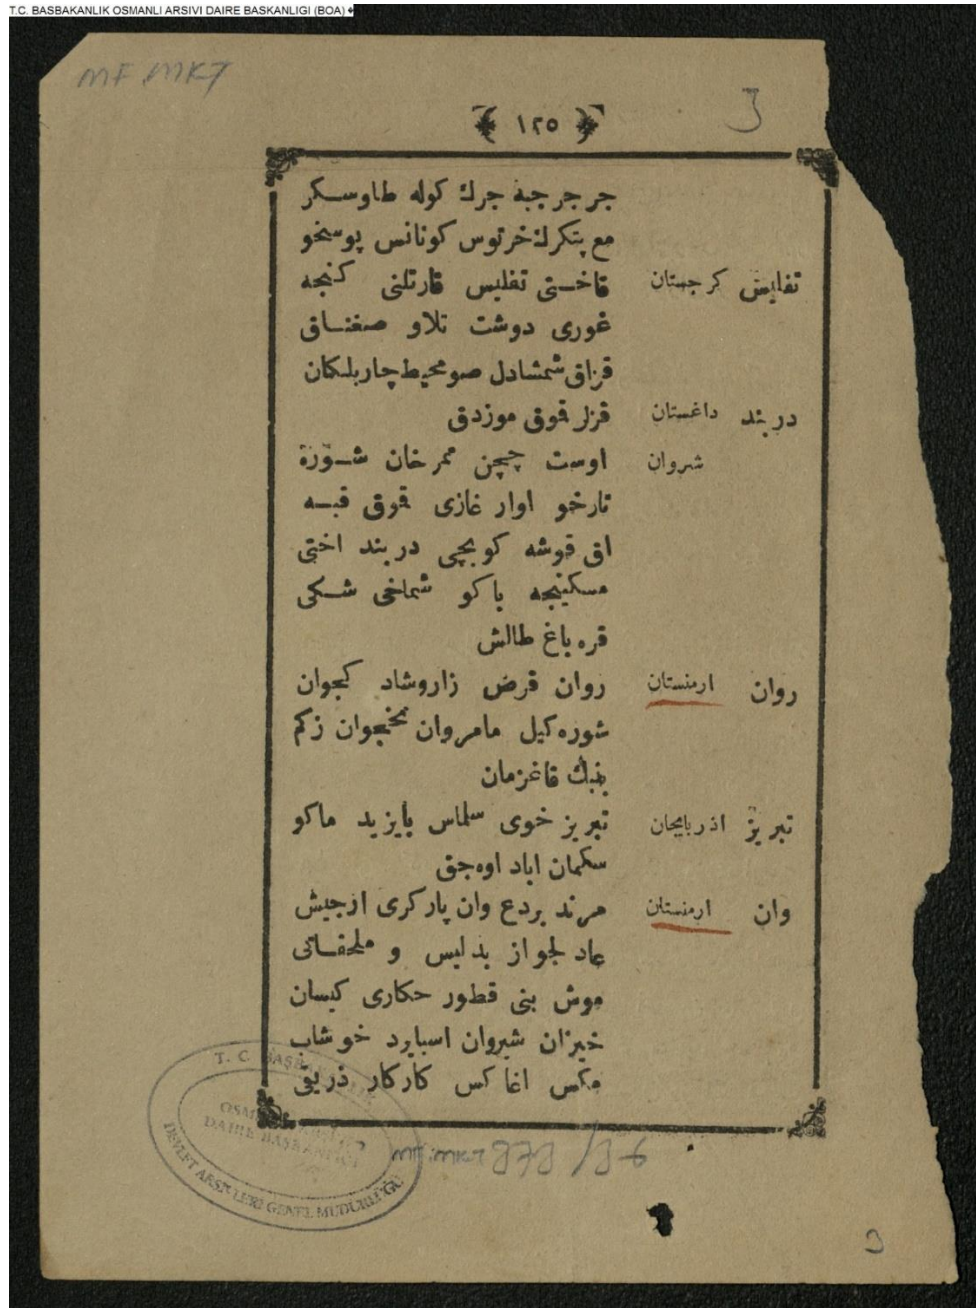 T.C. BASBAKANLIK OSMANLI ARSIVI DAIRE BASKANLIGI (BOA)
MF.MKT
3
١٢٥
جر جر جبه جرك كوله طاوسكر
مع پتكرك خرتوس كونانس پوسخو
تفليس كرجستان قاختى تفليس قارتلنى كنجه
غورى دوشت تلاو صغناق
قزاق شمشادل صومحيط چاربلكان
دربند داغستان قزلر قوق موزدق
شروان اوست چچن ممرخان شوزه
تارخو اوار غازى قوق قبه
اق قوشه كوبچى دربند اختى
مسكينجه باكو شماخى شكى
قره باغ طالش
روان ارمنستان روان قرض زاروشاد كجوان
شوره كيل مامروان نخجوان زكم
بنبك قاغزمان
تبريز اذربايجان تبريز خوى سلماس بايزيد ماكو
سكمان اباد اوه جق
وان ارمنستان مرند بردع وان پاركرى ازجيش
عادلجواز بدليس و ملحقاتى
موش بنى قطور حكارى كيسان
خيزان شيروان اسبايرد خوشاب
مكس اغاكس كاركار ذريقى
T. C. BAŞBAKANLIK
OSMANLI ARŞİVİ
DAİRE BAŞKANLIĞI
DEVLET ARŞİVLERİ GENEL MÜDÜRLÜĞÜ